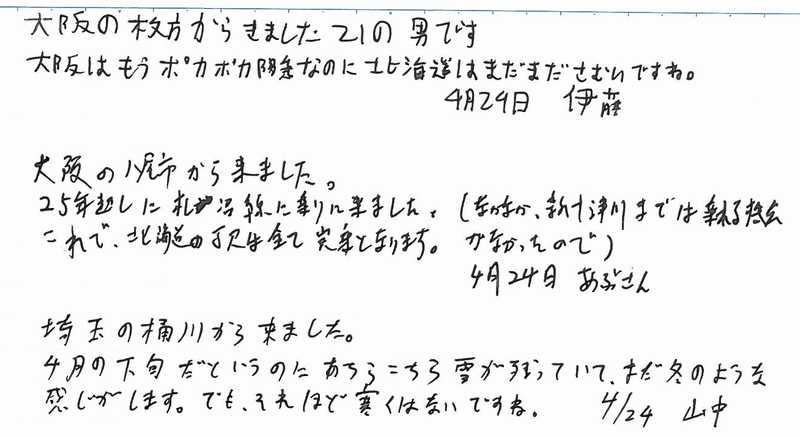 大阪の枚方からきました21の男です
大阪はもうポカポカ陽気なのに北海道はまだまださむいですね。
4月29日 伊藤
大阪の八尾市から来ました。
25年越しに札沼線に乗りに来ました。(なかなか、新十津川までは乗る機会
これで、北海道のJRは全て完乗となります。 がなかったので)
4月24日 あぶさん
埼玉の桶川から来ました。
4月の下旬だというのにあちらこちら雪が残っていて、まだ冬のような
感じがします。でも、それほど寒くはないですね。 4/24 山中